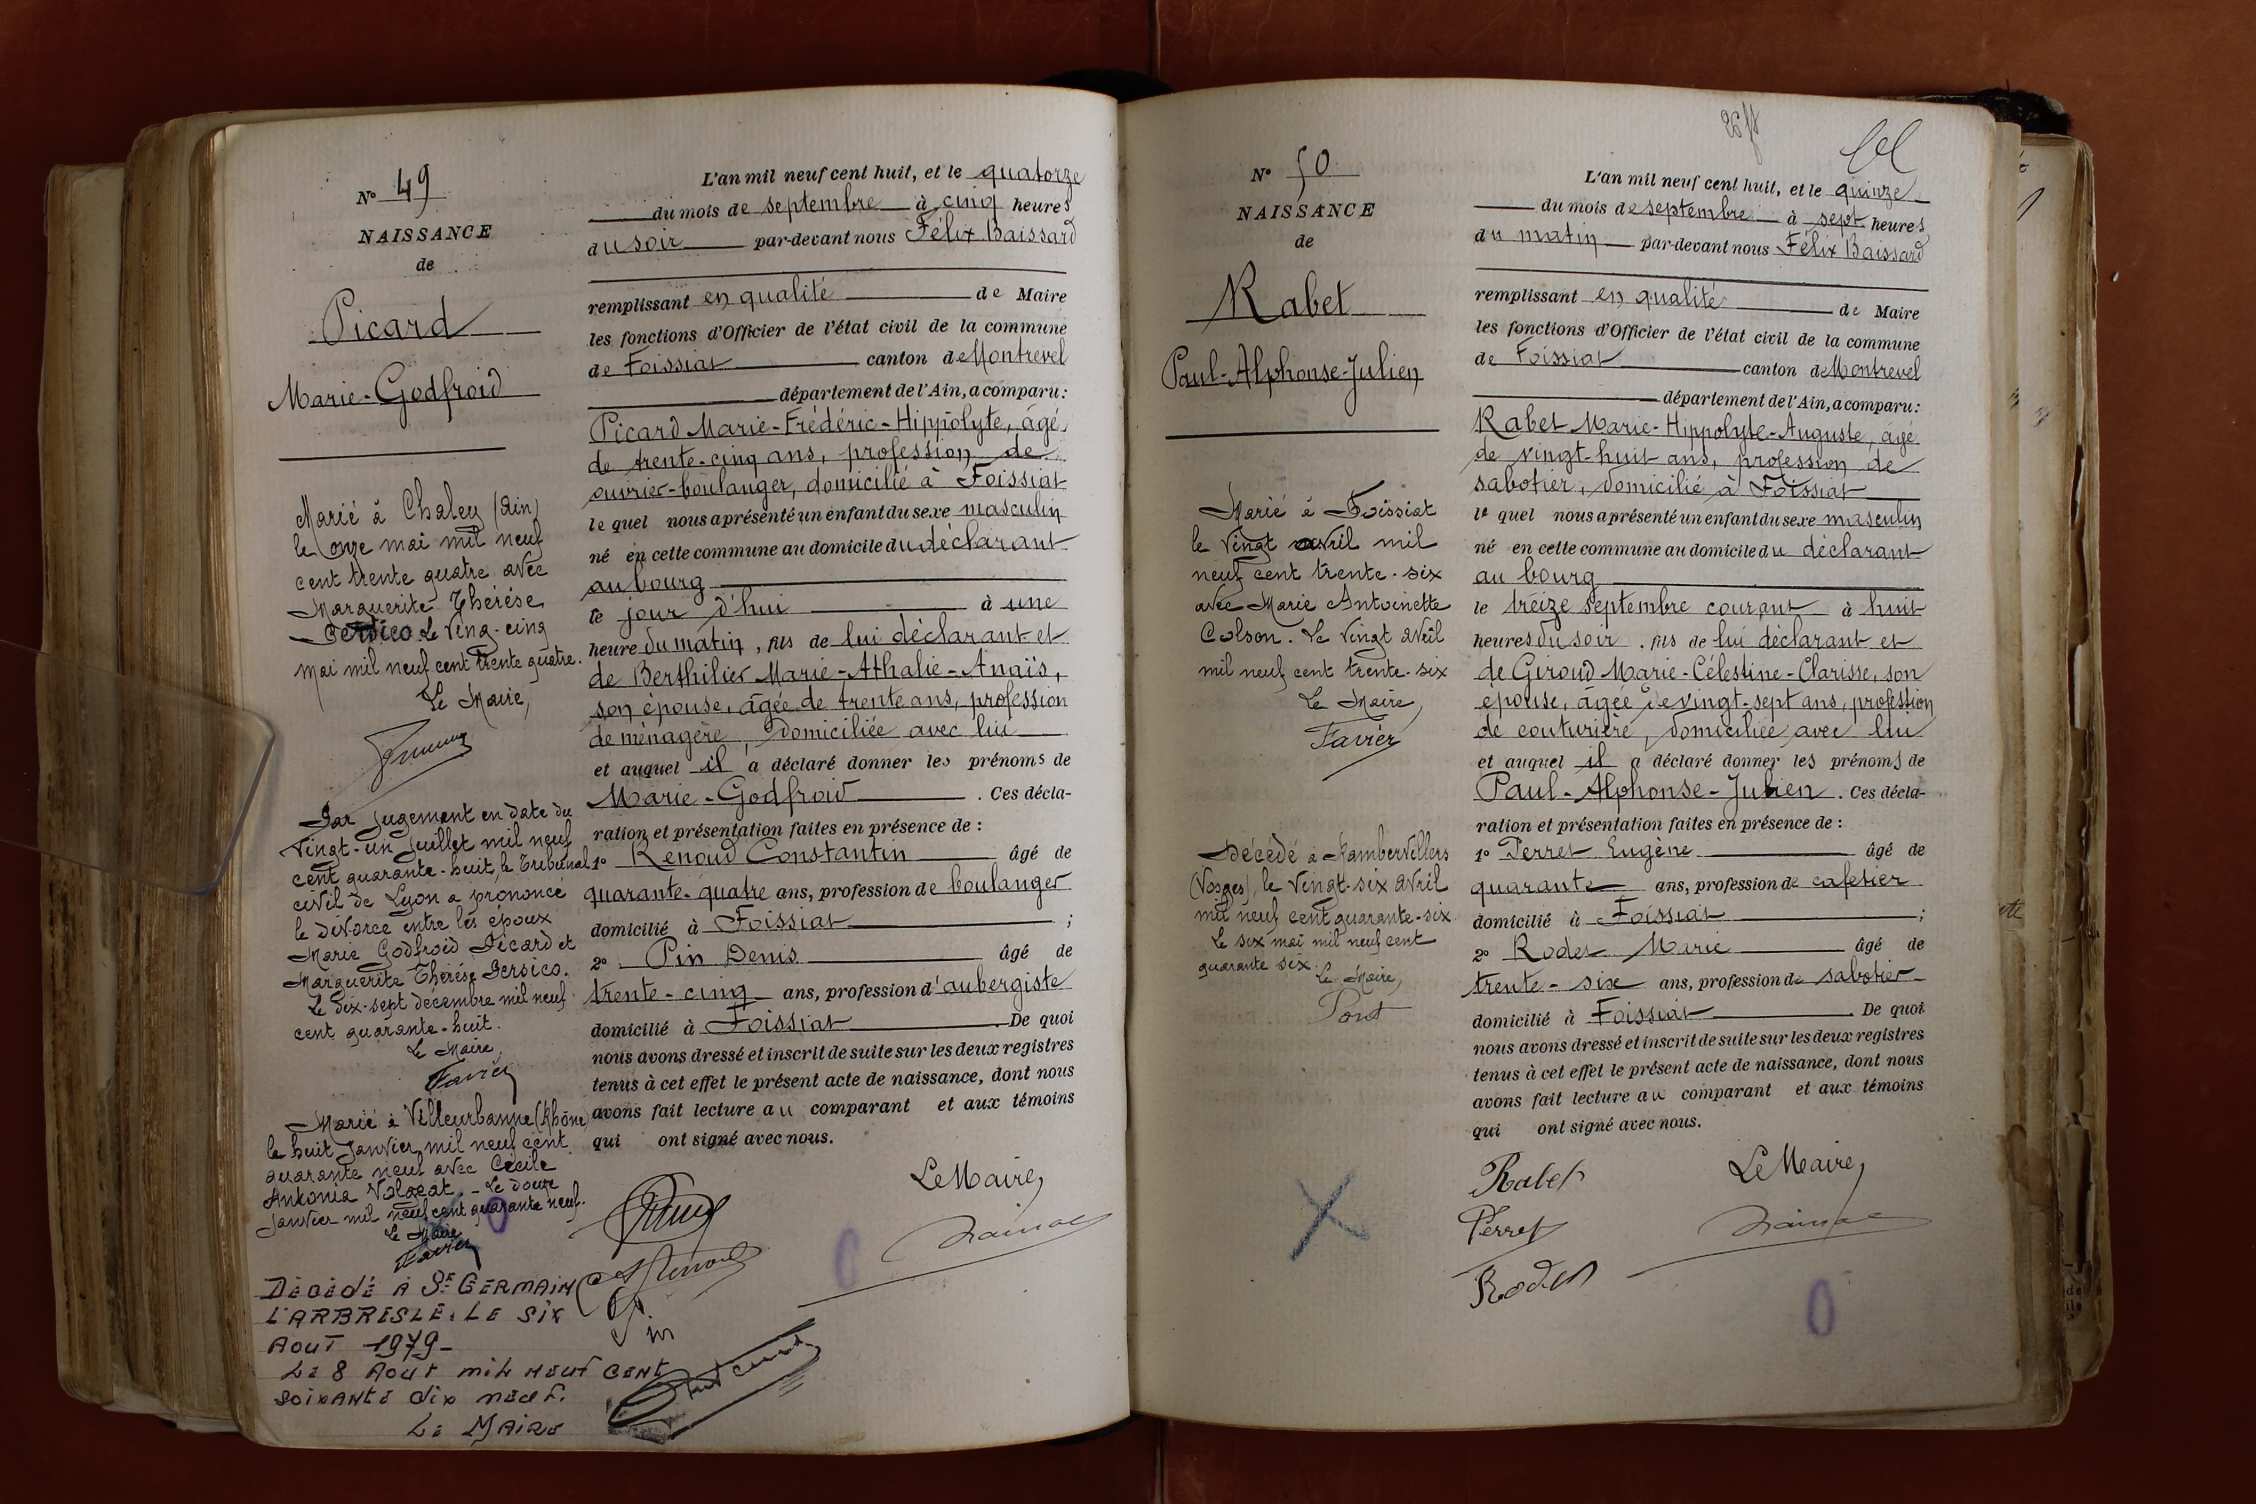 N° 49
NAISSANCE
de
Picard
Marie-Godfroid
Marié à Chaley (Ain)
le onze mai mil neuf
cent trente quatre avec
Marguerite Thérèse
Persico. Le Ving-cinq
mai mil neuf cent trente quatre.
Le Maire,
Par jugement en date du
vingt-un juillet mil neuf
cent quarante-huit, le Tribunal
civil de Lyon a prononcé
le divorce entre les époux
Marie Godfroid Picard et
Marguerite Thérèse Persico.
Le Dix-sept décembre mil neuf
cent quarante-huit.
Le Maire,
Favier
Marié à Villeurbanne (Rhône)
le huit Janvier mil neuf cent
quarante neuf avec Cécile
Antonia - Le douze
Janvier mil neuf cent quarante neuf.
Le Maire
Favier
Décédé à St GERMAIN
L'ARBRESLE. LE SIX
AOUT 1979-
LE 8 AOUT MIL NEUF CENT
SOIXANTE DIX NEUF.
LE MAIRE
L'an mil neuf cent huit, et le quatorze
du mois de septembre à cinq heures
du soir par-devant nous Félix Baissard
remplissant en qualité de Maire
les fonctions d'Officier de l'état civil de la commune
de Foissiat canton de Montrevel
département de l'Ain, a comparu:
Picard Marie-Frédéric-Hippolyte, âgé
de trente-cinq ans, profession de
ouvrier-boulanger, domicilié à Foissiat
le quel nous a présenté un enfant du sexe masculin
né en cette commune au domicile du déclarant
au bourg
le jour d'hui à une
heure du matin, fils de lui déclarant et
de Berthilier Marie-Athalie-Anaïs,
son épouse, âgée de trente ans, profession
de ménagère, domiciliée avec lui
et auquel il a déclaré donner les prénoms de
Marie-Godfroid. Ces décla-
ration et présentation faites en présence de :
1° Renoud Constantin âgé de
quarante-quatre ans, profession de boulanger
domicilié à Foissiat ;
2° Pin Denis âgé de
trente-cinq ans, profession d'aubergiste
domicilié à Foissiat. De quoi
nous avons dressé et inscrit de suite sur les deux registres
tenus à cet effet le présent acte de naissance, dont nous
avons fait lecture au comparant et aux témoins
qui ont signé avec nous.
Le Maire,
N° 50
NAISSANCE
de
Rabet
Paul-Alphonse-Julien
Marié à Foissiat
le vingt avril mil
neuf cent trente-six
avec Marie Antoinette
Colson. Le vingt avril
mil neuf cent trente-six
Le Maire,
Favier
Décédé à Rambervillers
(Vosges), le vingt-six avril
mil neuf cent quarante-six
Le six mai mil neuf cent
quarante six.
Le Maire,
Pont
L'an mil neuf cent huit, et le quinze
du mois de septembre à sept heures
du matin par-devant nous Félix Baissard
remplissant en qualité de Maire
les fonctions d'Officier de l'état civil de la commune
de Foissiat canton de Montrevel
département de l'Ain, a comparu:
Rabet Marie-Hippolyte-Auguste, âgé
de vingt-huit ans, profession de
sabotier, domicilié à Foissiat
le quel nous a présenté un enfant du sexe masculin
né en cette commune au domicile du déclarant
au bourg
le treize septembre courant à huit
heures du soir, fils de lui déclarant et
de Giroud Marie-Célestine-Clarisse, son
épouse, âgée de vingt-sept ans, profession
de couturière, domiciliée avec lui
et auquel il a déclaré donner les prénoms de
Paul-Alphonse-Julien. Ces décla-
ration et présentation faites en présence de :
1° Perret Eugène âgé de
quarante ans, profession de cafetier
domicilié à Foissiat ;
2° Rodet Marie âgé de
trente-six ans, profession de sabotier
domicilié à Foissiat. De quoi
nous avons dressé et inscrit de suite sur les deux registres
tenus à cet effet le présent acte de naissance, dont nous
avons fait lecture au comparant et aux témoins
qui ont signé avec nous.
Rabet
Le Maire,
Perret
Rodet